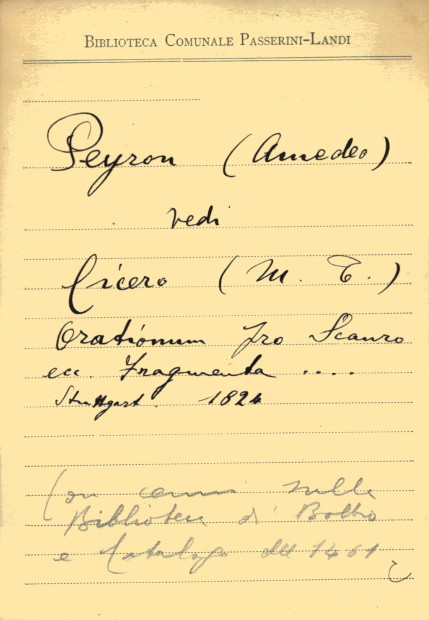 BIBLIOTECA COMUNALE PASSERINI-LANDI
Peyron (Amedeo)
vedi
Cicero (M. T.)
Orationum pro Scauro
ecc. Fragmenta ....
Stuttgart. 1824
Con cenni sulla
Biblioteca di Bobbio
e Catalogo del 1461